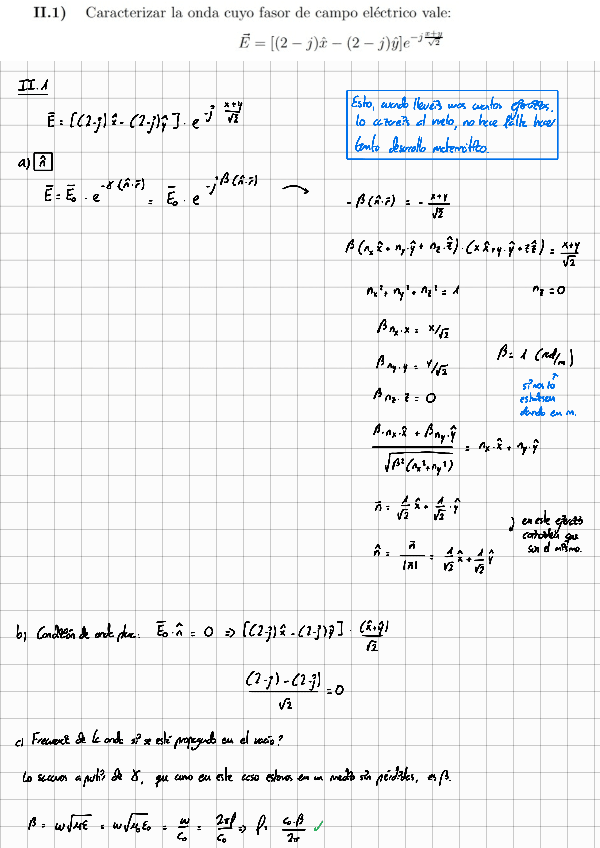 II.1) Caracterizar la onda cuyo fasor de campo eléctrico vale:
\vec{E} = [(2 − j)x̂ − (2 − j)ŷ]e^{−j\frac{x+y}{\sqrt{2}}}
II.1
Ē = [(2-j) x̂ - (2-j) ŷ] · e^{-j \frac{x+y}{√2}}
Esto, cuando llevéis unos cuantos ejercicios,
lo sacaréis al vuelo, no hace falta hacer
tanto desarrollo matemático.
a) n̂
Ē = Ē₀ · e^{-γ(n̂·r̄)} = Ē₀ · e^{-jβ(n̂·r̄)}
-β(n̂·r̄) = - \frac{x+y}{√2}
β(nₓ x̂ + n_y ŷ + n_z ẑ) · (x x̂ + y ŷ + z ẑ) = \frac{x+y}{√2}
nₓ² + n_y² + n_z² = 1 n_z = 0
β nₓ · x = x/√2
β n_y · y = y/√2
β = 1 (rad/m)
β n_z · z = 0
si nos lo
estuviesen
dando en m.
\frac{β·nₓ·x̂ + β n_y·ŷ}{\sqrt{β²(nₓ²+n_y²)}} = nₓ·x̂ + n_y·ŷ
n̄ = \frac{1}{√2} x̂ + \frac{1}{√2} · ŷ
n̂ = \frac{n̄}{|n̄|} = \frac{1}{√2} x̂ + \frac{1}{√2} ŷ
en este ejercicio
coinciden que
son el mismo.
b) Condición de onda plana: Ē₀ · n̂ = 0 ⇒ [(2-j) x̂ - (2-j) ŷ] · \frac{(x̂+ŷ)}{√2}
\frac{(2-j) - (2-j)}{√2} = 0
c) Frecuencia de la onda si se está propagando en el vacío?
Lo sacamos a partir de γ, que como en este caso estamos en un medio sin pérdidas, es β.
β = ω√με = ω√μ₀ε₀ = \frac{ω}{c₀} = \frac{2πf}{c₀} ⇒ f = \frac{c₀·β}{2π} ✓